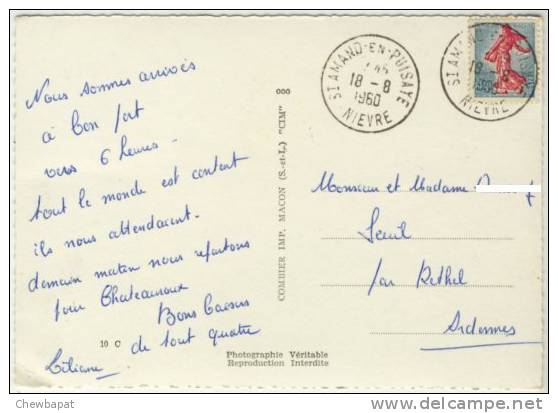 Nous sommes arrivés
à bon port
vers 6 heures -
tout le monde est content
ils nous attendaient -
demain matin nous repartons
pour Chateauroux
Bons Baisers
de tout quatre
Liliane
10 C
Photographie Véritable
Reproduction Interdite
COMBIER IMP. MACON (S.-et-L.) "CIM"
000
ST AMAND-EN-PUISAYE
18 - 8
1960
NIEVRE
ST AMAND-EN-PUISAYE
18 - 8
NIEVRE
Monsieur et Madame
Seuil
par Rethel
Ardennes
Chewbapat
http://www.delcampe.net